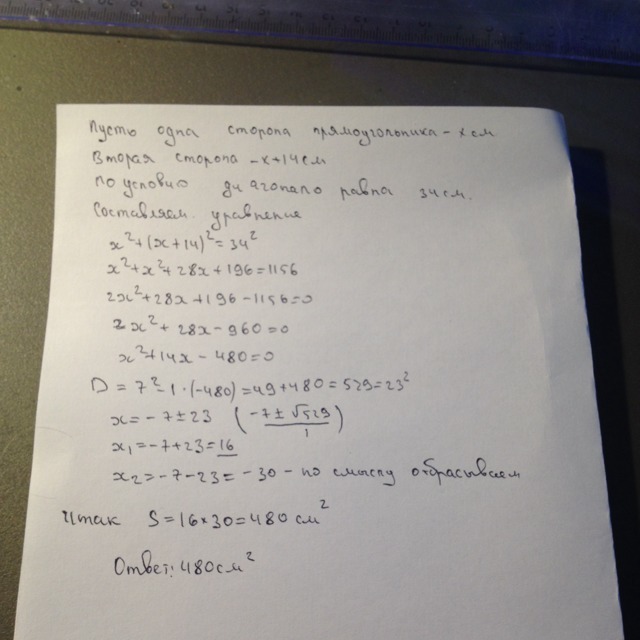 Пусть одна сторона прямоугольника – x см
Вторая сторона – x+14 см
По условию диагональ равна 34 см.
Составляем уравнение
x²+(x+14)²=34²
x²+x²+28x+196=1156
2x²+28x+196-1156=0
2x²+28x-960=0
x²+14x-480=0
D=7²-1·(-480)=49+480=529=23²
x=-7±23 ((-7±√529)/1)
x₁=-7+23=16
x₂=-7-23=-30 – по смыслу отбрасываем
Итак S=16×30=480 см²
Ответ: 480 см²